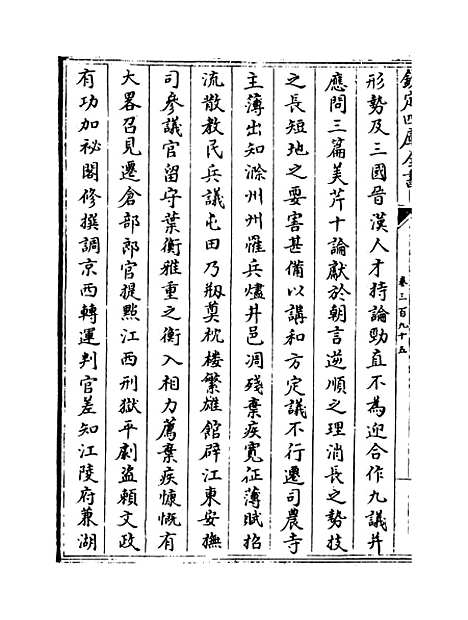 欽定四庫全書
卷三百九十五
形勢及三國晉漢人才持論勁直不為迎合作九議并
應問三篇美芹十論獻於朝言逆順之理消長之勢技
之長短地之要害甚備以講和方定議不行遷司農寺
主薄出知滁州州罹兵燼井邑凋殘棄疾寛征薄賦招
流散教民兵議屯田乃剏奠枕樓繁雄館辟江東安撫
司參議官留守葉衡雅重之衡入相力薦棄疾慷慨有
大畧召見遷倉部郎官提㸃江西刑獄平劇盗賴文政
有功加祕閣修撰調京西轉運判官差知江陵府兼湖